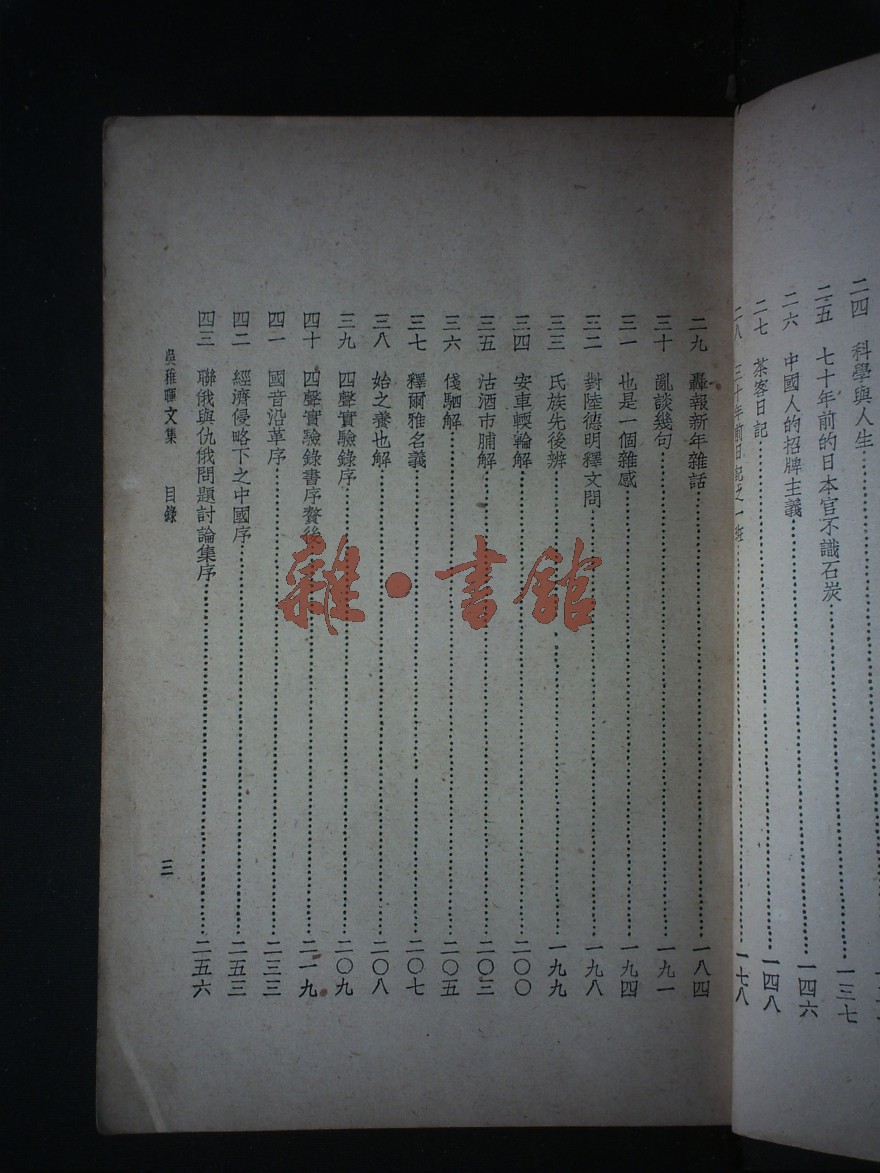 二四 科學與人生
二五 七十年前的日本官不識石炭 一三七
二六 中國人的招牌主義 一四六
二七 茶客日記 一四八
二八 三十年前日記之一斑 一七八
二九 轟報新年雜話 一八四
三十 亂談幾句 一九一
三一 也是一個雜感 一九四
三二 對陸德明釋文問 一九八
三三 氏族先後辨 一九九
三四 安車輭輪解 二〇〇
三五 沽酒市脯解 二〇三
三六 俴駟解 二〇五
三七 釋爾雅名義 二〇七
三八 始之養也解 二〇八
三九 四聲實驗錄序 二〇九
四十 四聲實驗錄書序贅後 二一九
四一 國音沿革序 二三三
四二 經濟侵略下之中國序 二五三
四三 聯俄與仇俄問題討論集序 二五六
吳稚暉文集 目錄 三
雜·書館